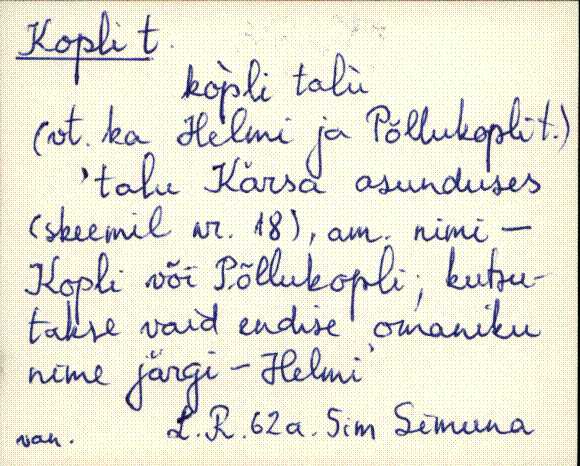 Kopli t.
kòpli talù
(vt. ka Helmi ja Põllukopli t.)
'talu Kärsa asunduses
(skeemil nr. 18), am. nimi -
Kopli või Põllukopli; kutsu-
takse vaid endise omaniku
nime järgi - Helmi'
L.R. 62a. Sim Simuna
van.